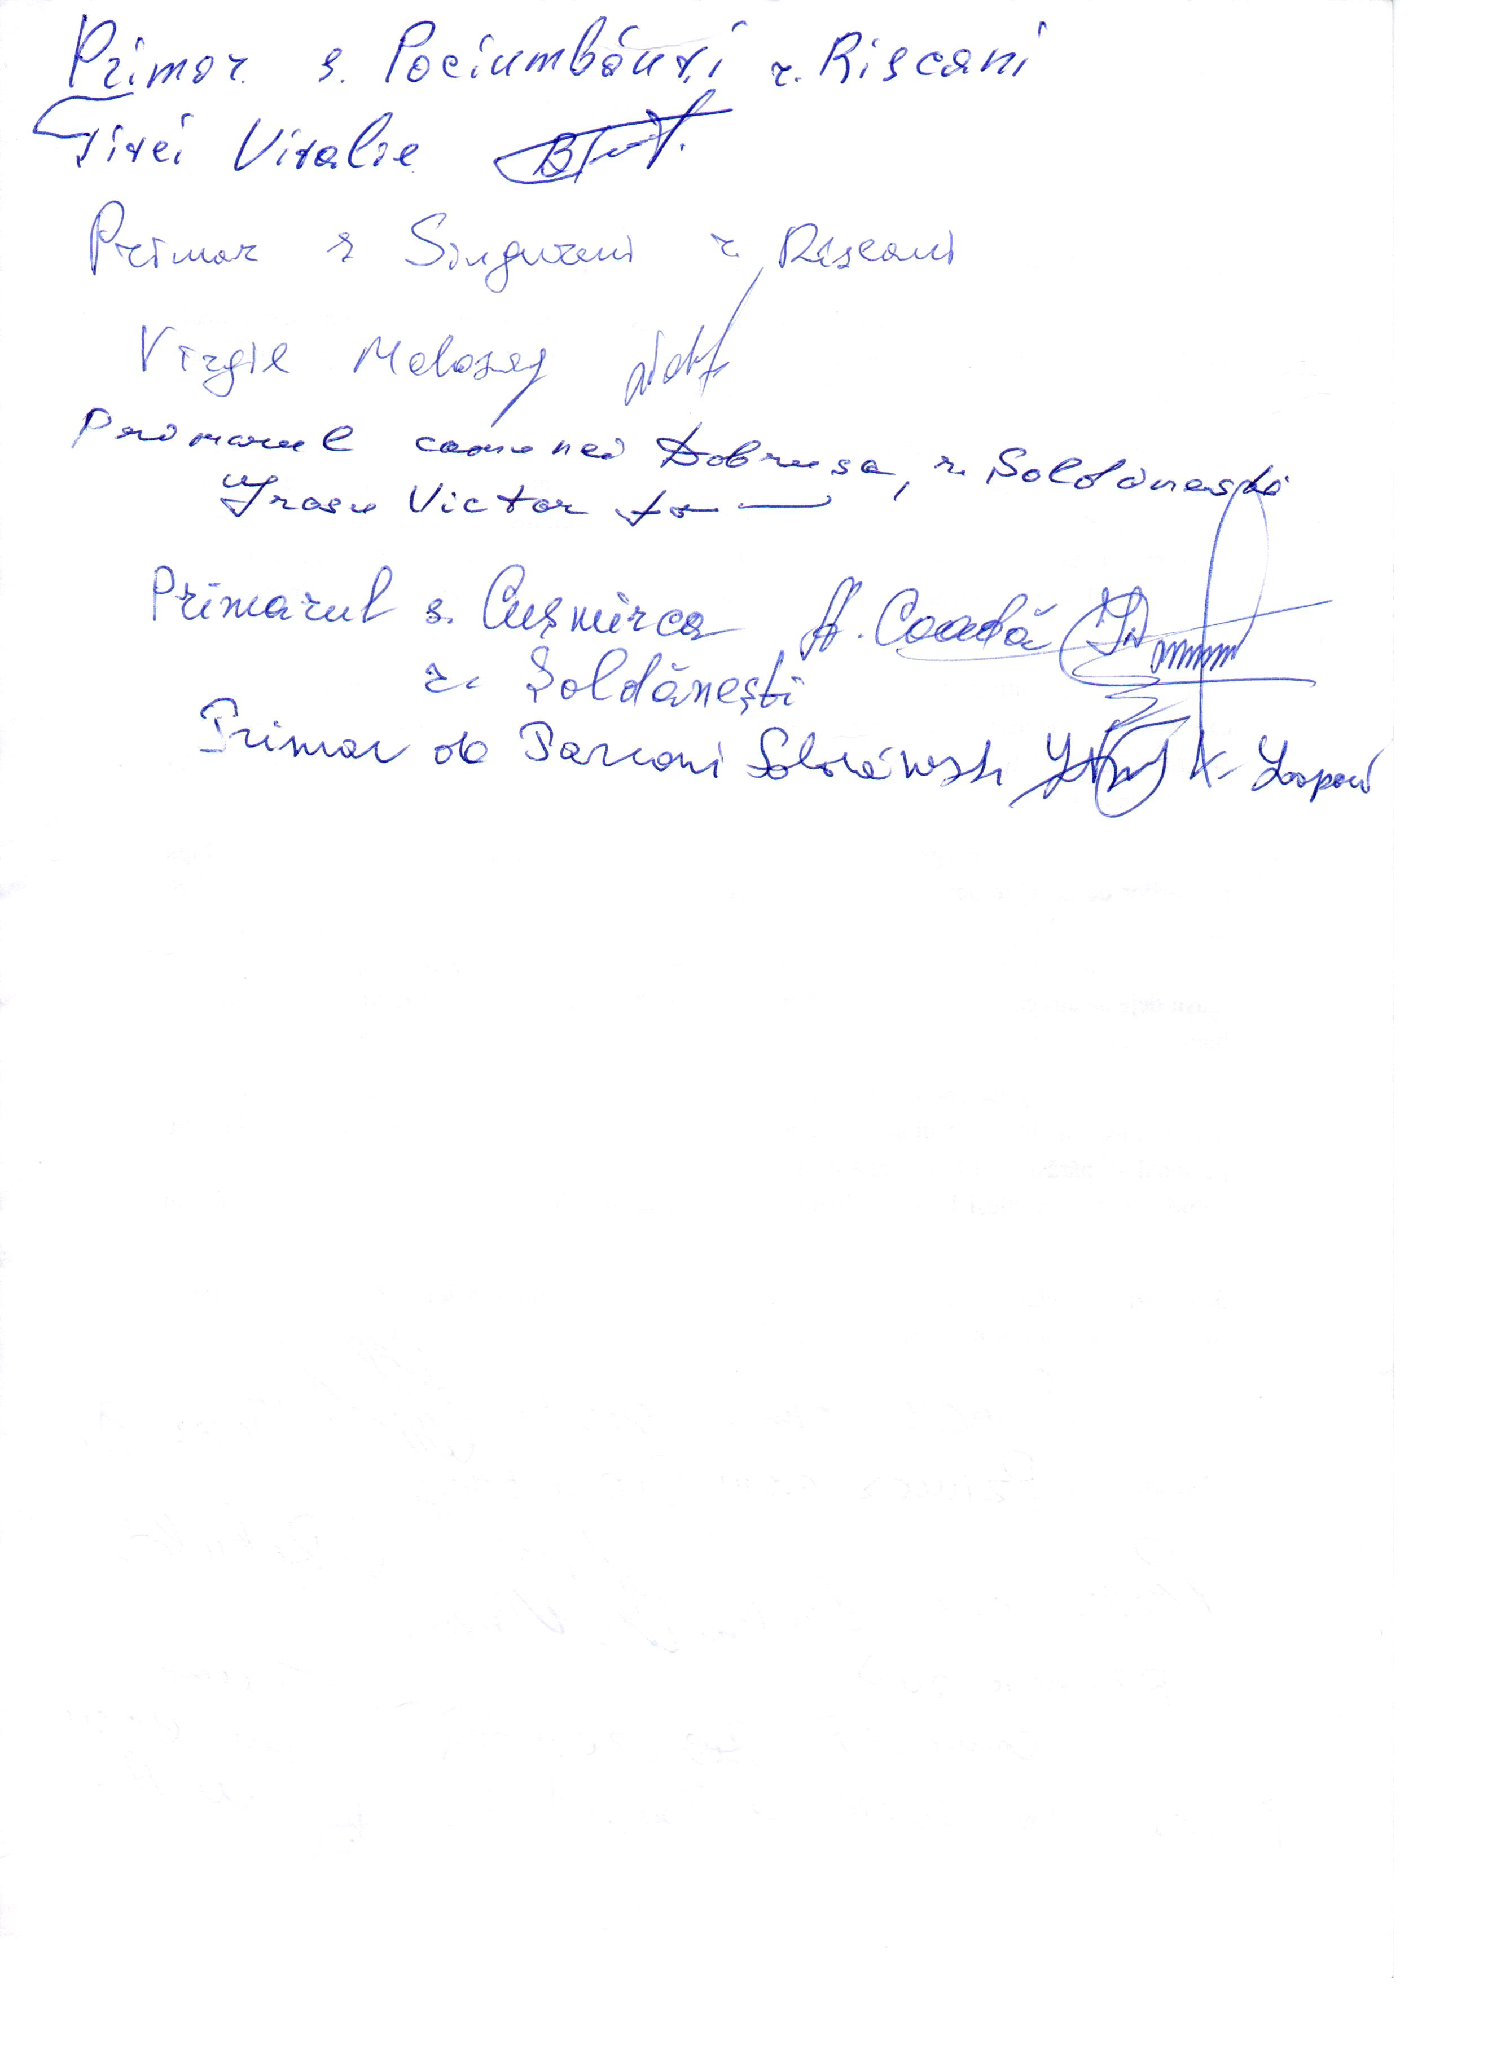 Primar s. Pociumbăuți r. Rîșcani
Tirei Vitalie
Primar s Singureni r. Rîșcani
Virgil
Primarul comunei Dobrușa, r. Soldanești
Victor
Primarul s. Cușmirca A. Coadă
r. Șoldănești
Primar de Parcani Soldănești